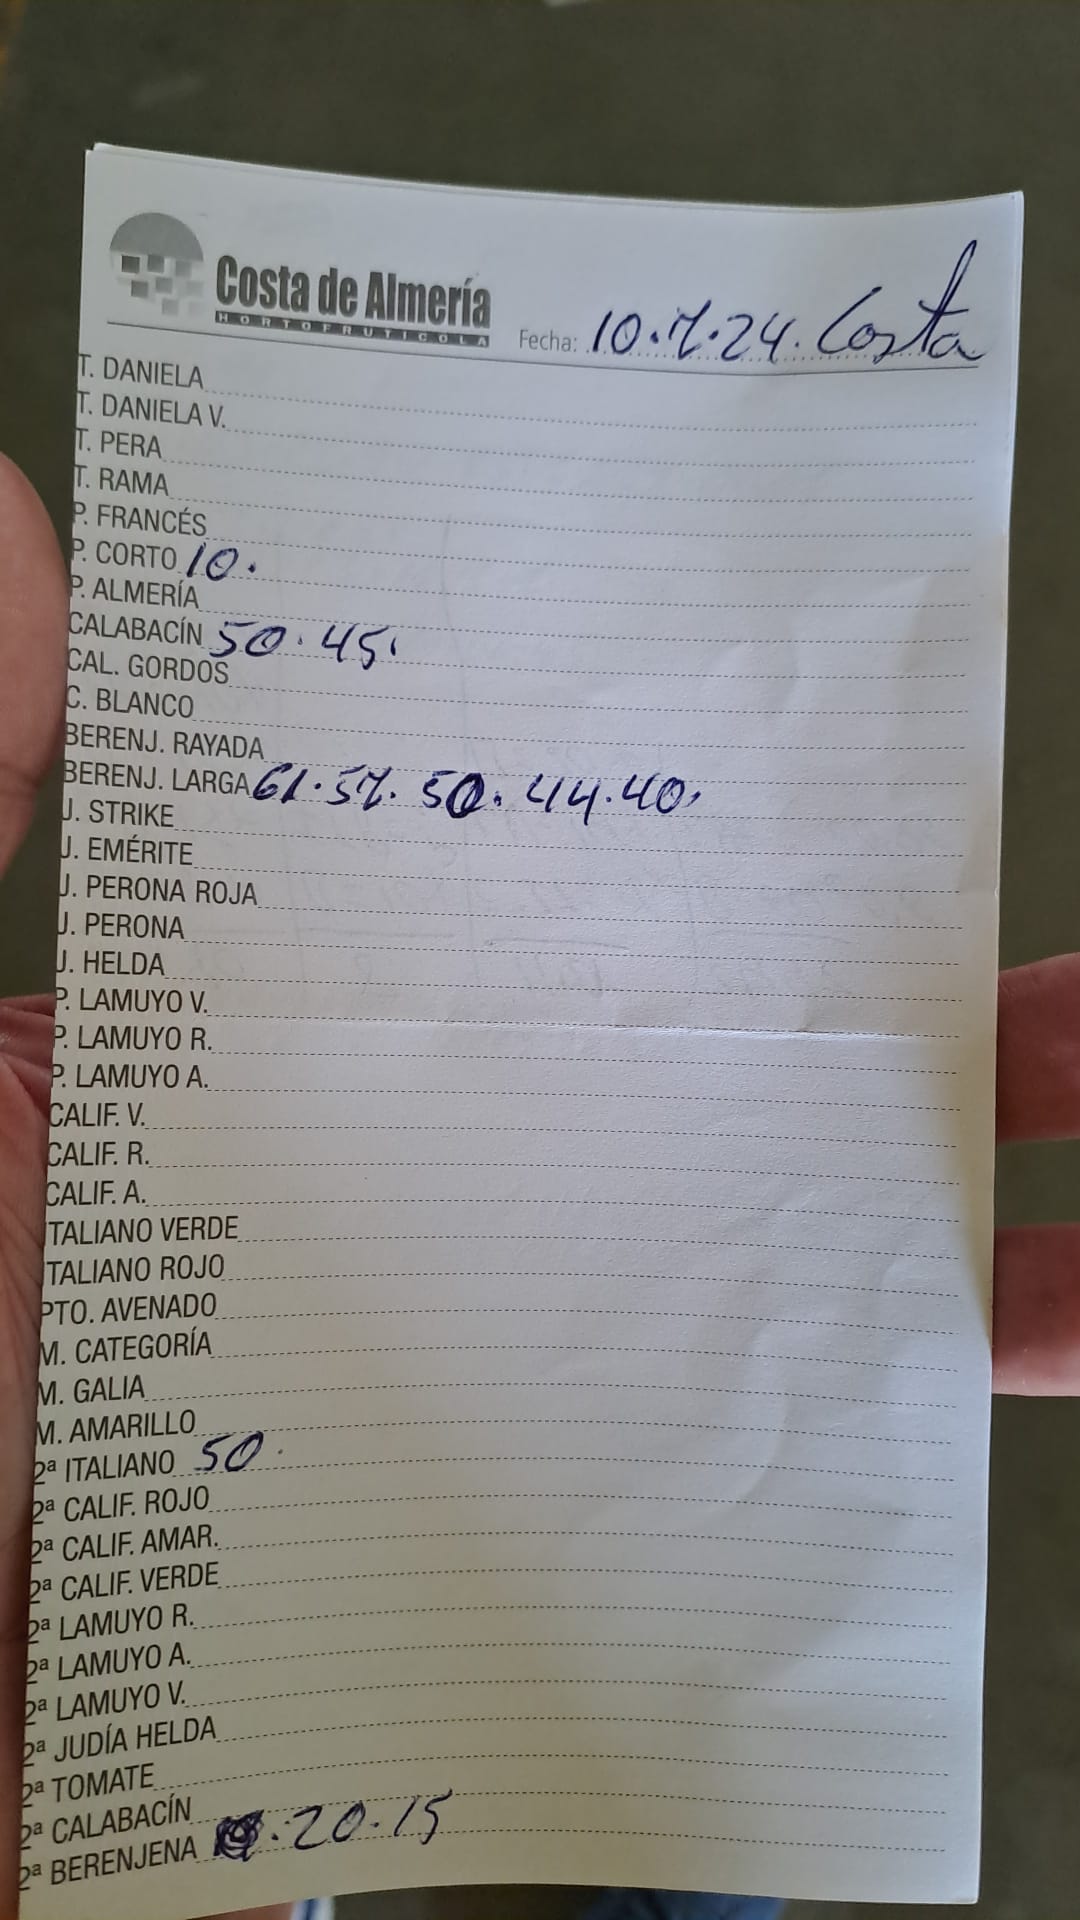 Costa de Almería
HORTOFRUTICOLA
Fecha: 10.7.24. Costa
T. DANIELA
T. DANIELA V.
T. PERA
T. RAMA
P. FRANCÉS
P. CORTO 10.
P. ALMERÍA
CALABACÍN 50. 45.
CAL. GORDOS
C. BLANCO
BERENJ. RAYADA
BERENJ. LARGA 61. 57. 50. 44. 40.
J. STRIKE
J. EMÉRITE
J. PERONA ROJA
J. PERONA
J. HELDA
P. LAMUYO V.
P. LAMUYO R.
P. LAMUYO A.
CALIF. V.
CALIF. R.
CALIF. A.
ITALIANO VERDE
ITALIANO ROJO
PTO. AVENADO
M. CATEGORÍA
M. GALIA
M. AMARILLO
2ª ITALIANO 50.
2ª CALIF. ROJO
2ª CALIF. AMAR.
2ª CALIF. VERDE
2ª LAMUYO R.
2ª LAMUYO A.
2ª LAMUYO V.
2ª JUDÍA HELDA
2ª TOMATE
2ª CALABACÍN
2ª BERENJENA . 20. 15